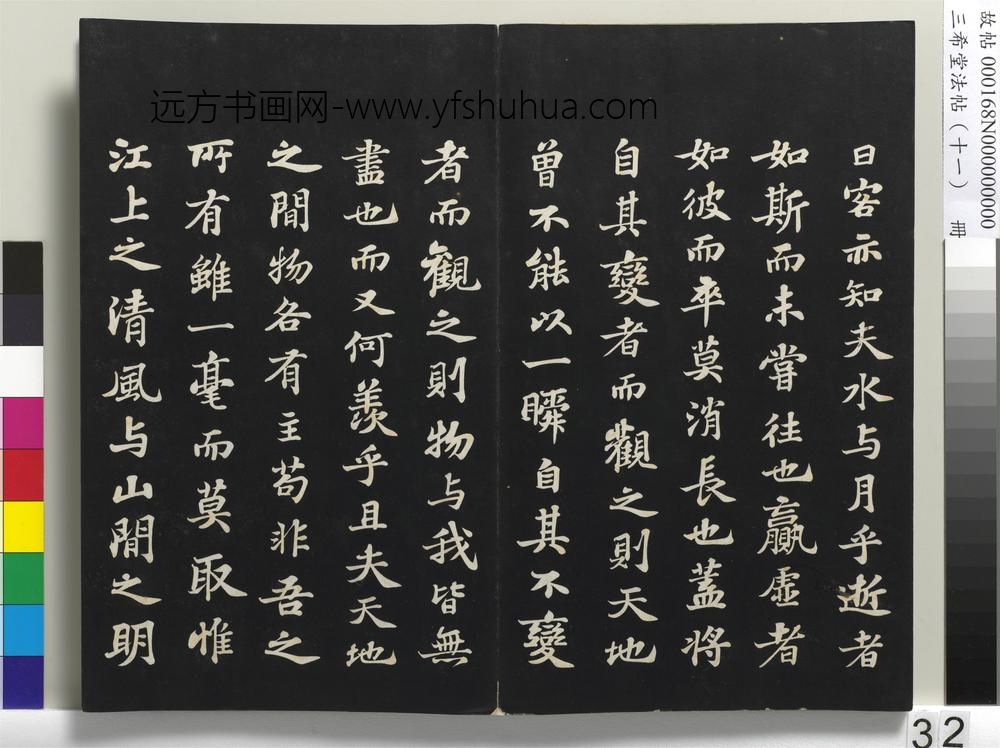 故帖 000168N000000000
三希堂法帖(十一) 冊
远方书画网-www.yfshuhua.com
曰客亦知夫水与月乎逝者
如斯而未嘗往也贏虛者
如彼而卒莫消長也蓋將
自其變者而觀之則天地
曾不能以一瞬自其不變
者而觀之則物与我皆無
盡也而又何羨乎且夫天地
之間物各有主苟非吾之
所有雖一毫而莫取惟
江上之清風与山間之明
32